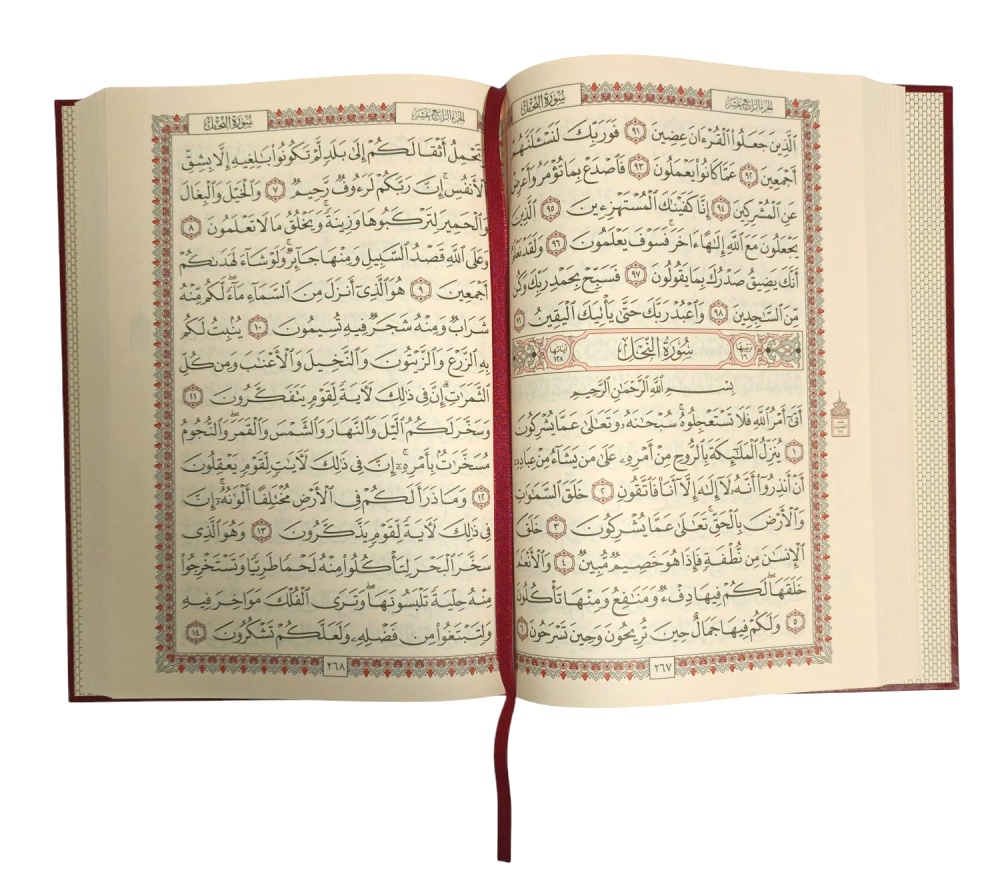 الجزء الرابع عشر
سورة النحل
ٱلَّذِينَ جَعَلُوا۟ ٱلْقُرْءَانَ عِضِينَ ٩١ فَوَرَبِّكَ لَنَسْـَٔلَنَّهُمْ
أَجْمَعِينَ ٩٢ عَمَّا كَانُوا۟ يَعْمَلُونَ ٩٣ فَٱصْدَعْ بِمَا تُؤْمَرُ وَأَعْرِضْ
عَنِ ٱلْمُشْرِكِينَ ٩٤ إِنَّا كَفَيْنَـٰكَ ٱلْمُسْتَهْزِءِينَ ٩٥ ٱلَّذِينَ
يَجْعَلُونَ مَعَ ٱللَّهِ إِلَـٰهًا ءَاخَرَ ۚ فَسَوْفَ يَعْلَمُونَ ٩٦ وَلَقَدْ نَعْلَمُ
أَنَّكَ يَضِيقُ صَدْرُكَ بِمَا يَقُولُونَ ٩٧ فَسَبِّحْ بِحَمْدِ رَبِّكَ وَكُن
مِّنَ ٱلسَّـٰجِدِينَ ٩٨ وَٱعْبُدْ رَبَّكَ حَتَّىٰ يَأْتِيَكَ ٱلْيَقِينُ ٩٩
ترتيبها ١٦ سُورَةُ النَّحْلِ آياتها ١٢٨
بِسْمِ ٱللَّهِ ٱلرَّحْمَـٰنِ ٱلرَّحِيمِ
أَتَىٰٓ أَمْرُ ٱللَّهِ فَلَا تَسْتَعْجِلُوهُ ۚ سُبْحَـٰنَهُۥ وَتَعَـٰلَىٰ عَمَّا يُشْرِكُونَ
١ يُنَزِّلُ ٱلْمَلَـٰٓئِكَةَ بِٱلرُّوحِ مِنْ أَمْرِهِۦ عَلَىٰ مَن يَشَآءُ مِنْ عِبَادِهِۦٓ
أَنْ أَنذِرُوٓا۟ أَنَّهُۥ لَآ إِلَـٰهَ إِلَّآ أَنَا۠ فَٱتَّقُونِ ٢ خَلَقَ ٱلسَّمَـٰوَٰتِ
وَٱلْأَرْضَ بِٱلْحَقِّ ۚ تَعَـٰلَىٰ عَمَّا يُشْرِكُونَ ٣ خَلَقَ
ٱلْإِنسَـٰنَ مِن نُّطْفَةٍ فَإِذَا هُوَ خَصِيمٌ مُّبِينٌ ٤ وَٱلْأَنْعَـٰمَ
خَلَقَهَا ۗ لَكُمْ فِيهَا دِفْءٌ وَمَنَـٰفِعُ وَمِنْهَا تَأْكُلُونَ
٥ وَلَكُمْ فِيهَا جَمَالٌ حِينَ تُرِيحُونَ وَحِينَ تَسْرَحُونَ ٦
٢٦٧
الجزء الرابع عشر
سورة النحل
وَتَحْمِلُ أَثْقَالَكُمْ إِلَىٰ بَلَدٍ لَّمْ تَكُونُوا۟ بَـٰلِغِيهِ إِلَّا بِشِقِّ
ٱلْأَنفُسِ ۚ إِنَّ رَبَّكُمْ لَرَءُوفٌ رَّحِيمٌ ٧ وَٱلْخَيْلَ وَٱلْبِغَالَ
وَٱلْحَمِيرَ لِتَرْكَبُوهَا وَزِينَةً ۚ وَيَخْلُقُ مَا لَا تَعْلَمُونَ ٨
وَعَلَى ٱللَّهِ قَصْدُ ٱلسَّبِيلِ وَمِنْهَا جَآئِرٌ ۚ وَلَوْ شَآءَ لَهَدَىٰكُمْ
أَجْمَعِينَ ٩ هُوَ ٱلَّذِىٓ أَنزَلَ مِنَ ٱلسَّمَآءِ مَآءً ۖ لَّكُم مِّنْهُ
شَرَابٌ وَمِنْهُ شَجَرٌ فِيهِ تُسِيمُونَ ١٠ يُنۢبِتُ لَكُم
بِهِ ٱلزَّرْعَ وَٱلزَّيْتُونَ وَٱلنَّخِيلَ وَٱلْأَعْنَـٰبَ وَمِن كُلِّ
ٱلثَّمَرَٰتِ ۗ إِنَّ فِى ذَٰلِكَ لَـَٔايَةً لِّقَوْمٍ يَتَفَكَّرُونَ ١١
وَسَخَّرَ لَكُمُ ٱلَّيْلَ وَٱلنَّهَارَ وَٱلشَّمْسَ وَٱلْقَمَرَ ۖ وَٱلنُّجُومُ
مُسَخَّرَٰتٌۢ بِأَمْرِهِۦٓ ۗ إِنَّ فِى ذَٰلِكَ لَـَٔايَـٰتٍ لِّقَوْمٍ يَعْقِلُونَ
١٢ وَمَا ذَرَأَ لَكُمْ فِى ٱلْأَرْضِ مُخْتَلِفًا أَلْوَٰنُهُۥٓ ۗ إِنَّ
فِى ذَٰلِكَ لَـَٔايَةً لِّقَوْمٍ يَذَّكَّرُونَ ١٣ وَهُوَ ٱلَّذِى
سَخَّرَ ٱلْبَحْرَ لِتَأْكُلُوا۟ مِنْهُ لَحْمًا طَرِيًّا وَتَسْتَخْرِجُوا۟
مِنْهُ حِلْيَةً تَلْبَسُونَهَا وَتَرَى ٱلْفُلْكَ مَوَاخِرَ فِيهِ
وَلِتَبْتَغُوا۟ مِن فَضْلِهِۦ وَلَعَلَّكُمْ تَشْكُرُونَ ١٤
٢٦٨